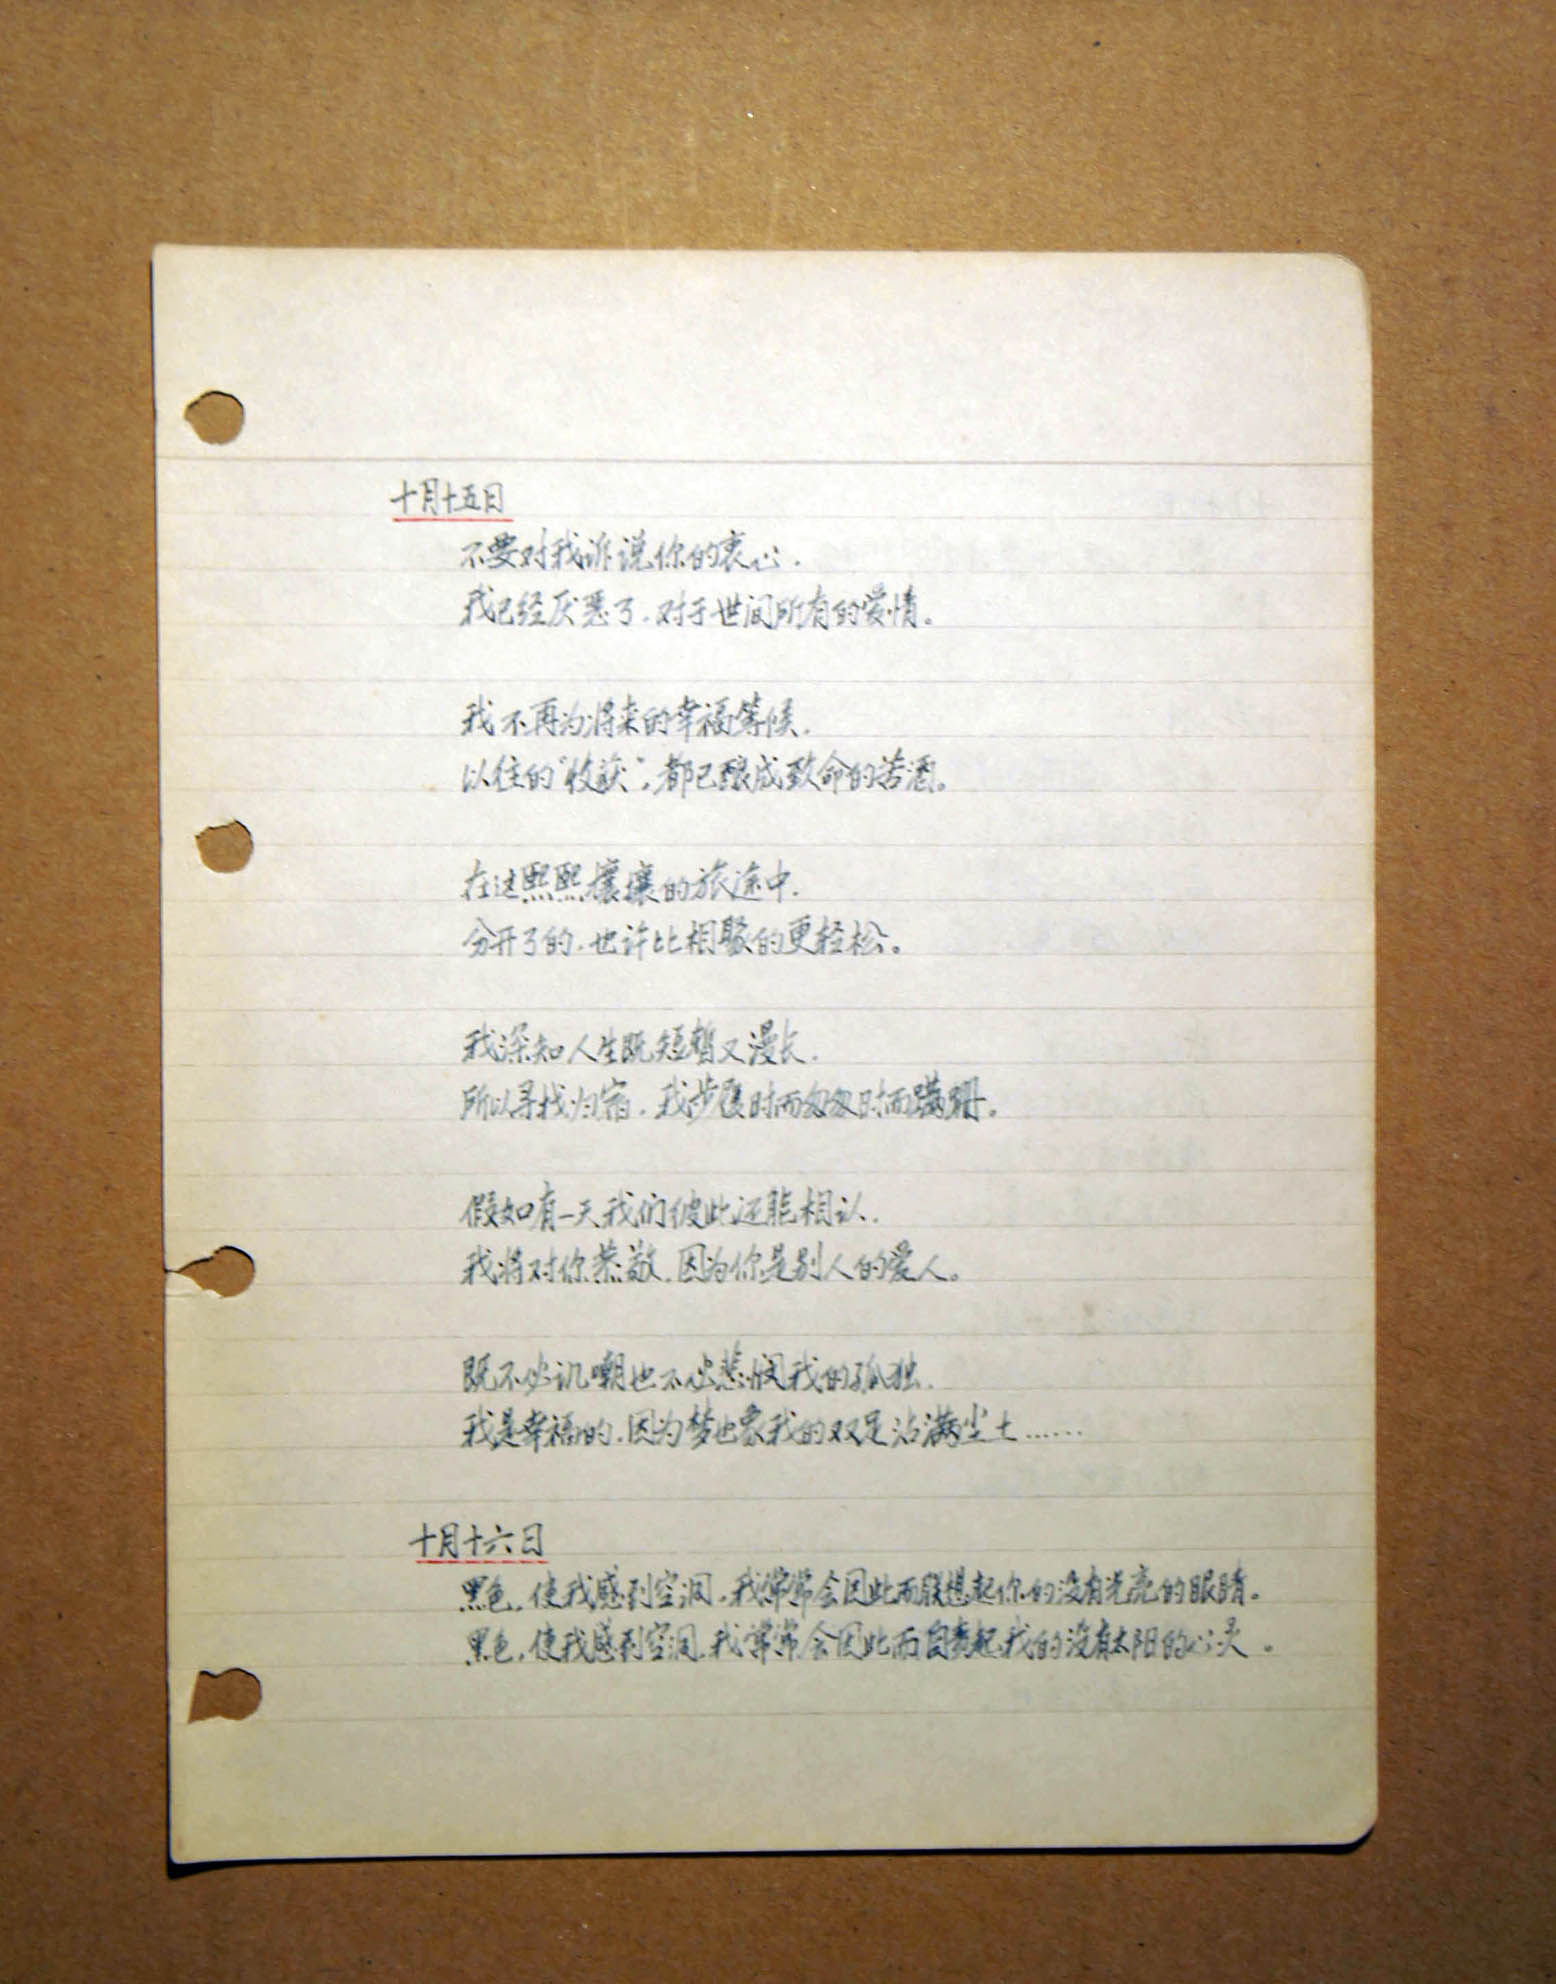 十月十五日
不要对我诉说你的衷心.
我已经厌恶了.对于世间所有的爱情。
我不再为将来的幸福等候.
以往的“收获”.都已酿成致命的苦酒。
在这熙熙攘攘的旅途中.
分开了的.也许比相聚的更轻松。
我深知人生既短暂又漫长.
所以寻找归宿.我步履时而匆匆时而蹒跚。
假如有一天我们彼此还能相认.
我将对你恭敬.因为你是别人的爱人。
既不必讥嘲也不必悲悯我的孤独.
我是幸福的.因为梦也象我的双足沾满尘土……
十月十六日
黑色.使我感到空洞.我常常会因此而联想起你的没有光亮的眼睛。
黑色.使我感到空洞.我常常会因此而自责起我的没有太阳的心灵。